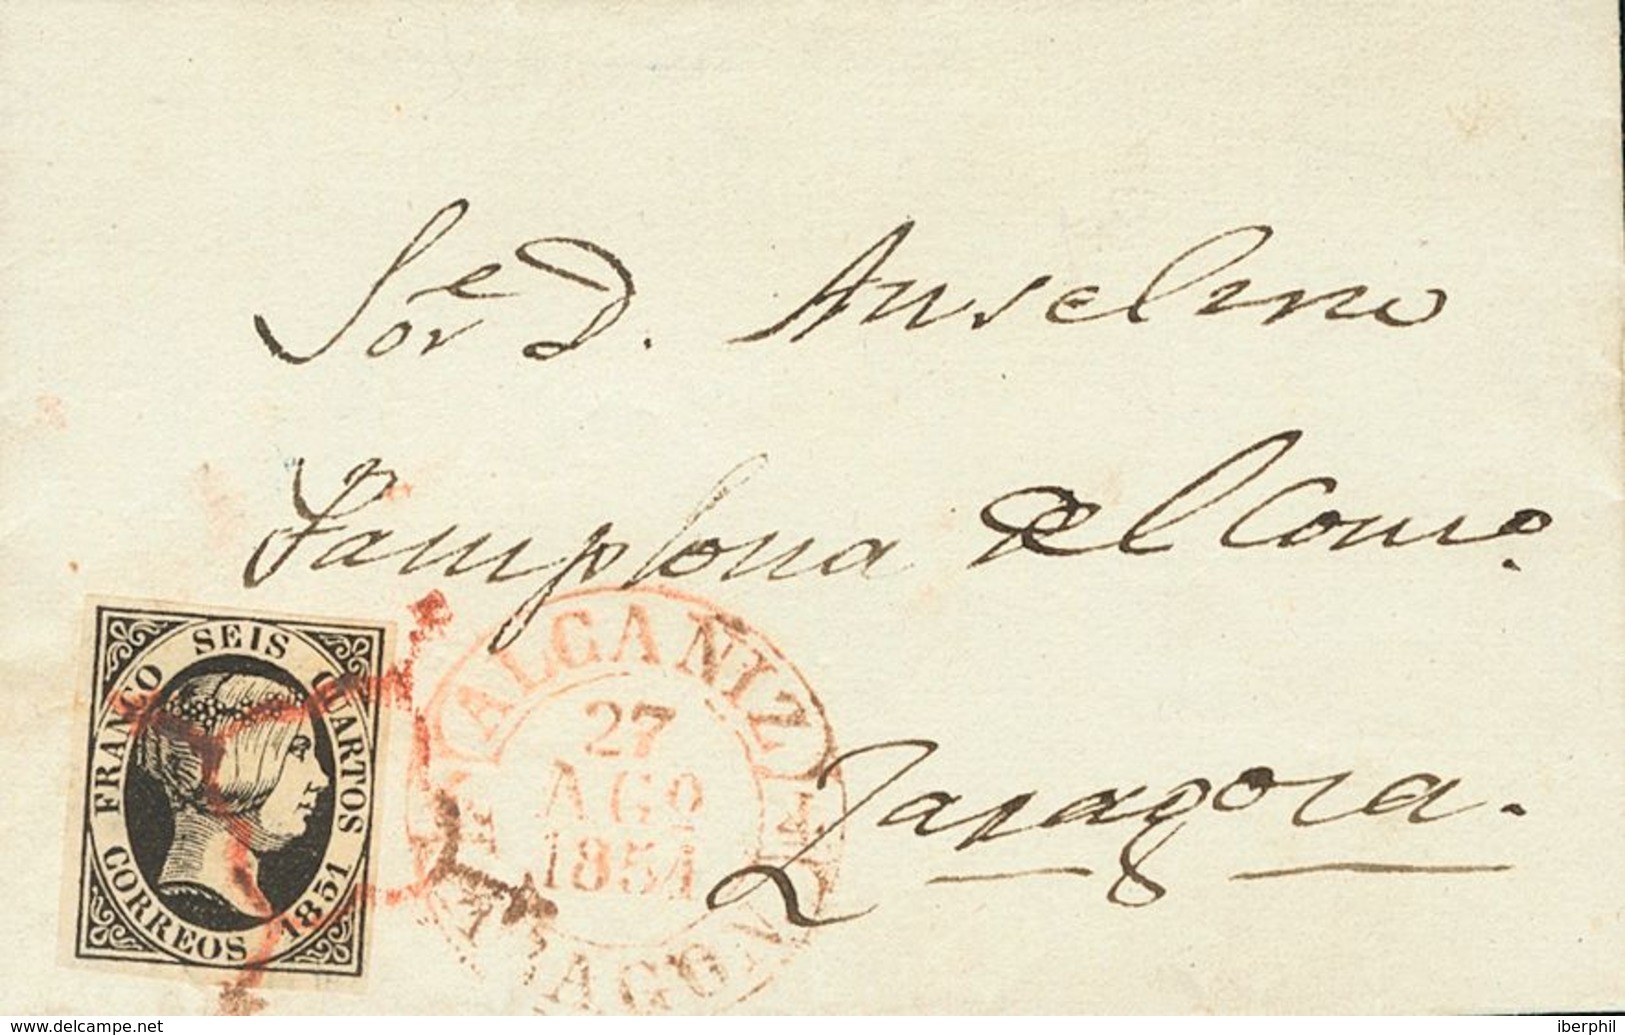 Sor.e D. Anselmo
Pamplona del Come.o
Zaragoza.
FRANCO SEIS CUARTOS
CORREOS 1851
ALCAÑIZ
27
AGO
1851
ARAGON
www.delcampe.net
iberphil